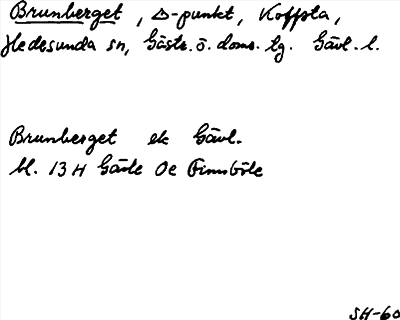 Brunberget, Δ-punkt, Koffsta,
Hedesunda sn, Gästr. ö. doms. tg. Gävl. l.
Brunberget ek Gävl.
bl. 13 H Gävle 0e Finnböle
SH-60